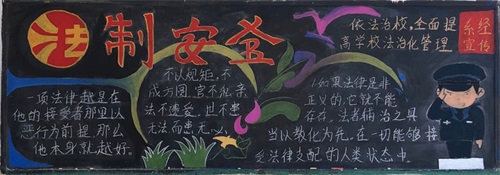 法制安登
依法治校,全面提
高学校法治化管理
系经
宣传
一项法律越是在
他的接受者那里以
恶行为前提,那么
他本身就越好.
不以规矩,不
成方圆,官不私亲
法不遗爱,世不患
无法,而患无必
如果法律是非
正义的,它就不能
存在。法者,缉治之具
当以教化为先。在一切能够接
受法律支配的人类状态中.